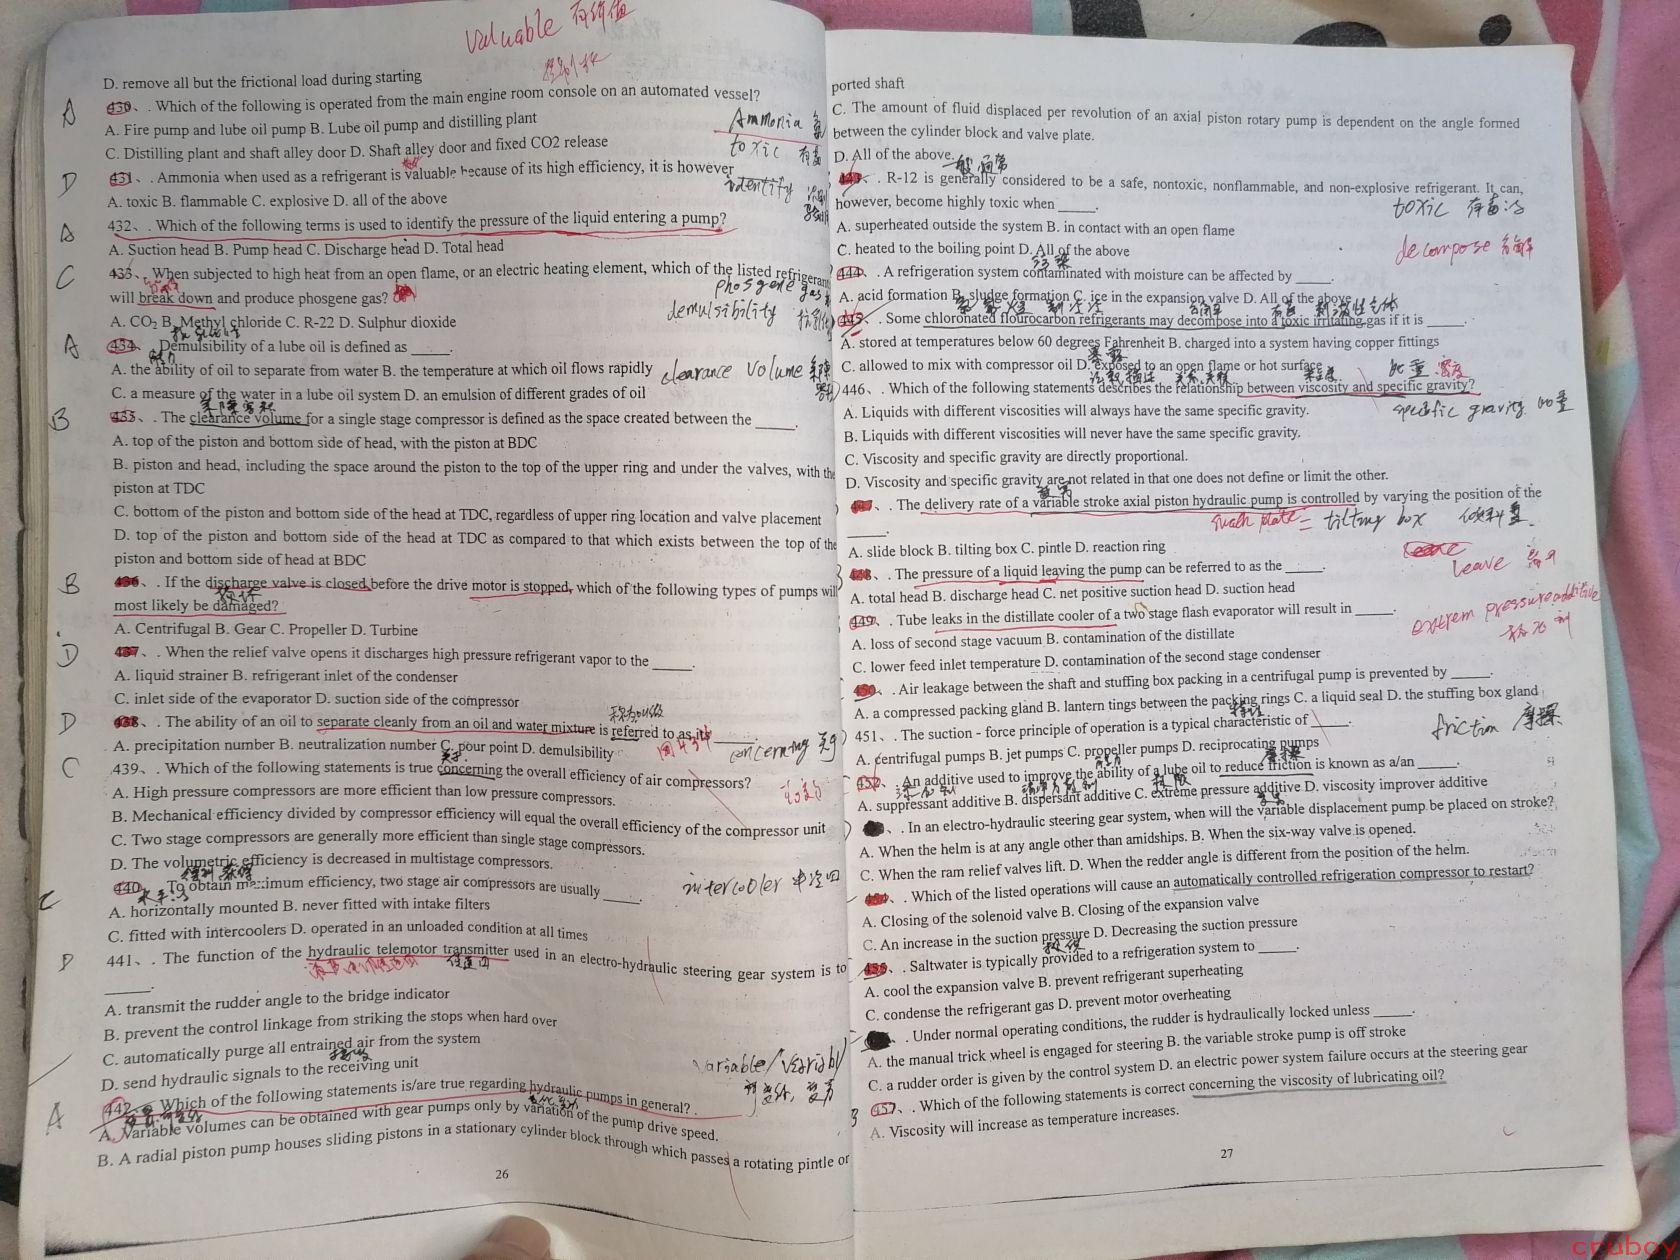 valuable 有价值
D. remove all but the frictional load during starting
A
430、. Which of the following is operated from the main engine room console on an automated vessel?
A. Fire pump and lube oil pump B. Lube oil pump and distilling plant
Ammonia 氨
C. Distilling plant and shaft alley door D. Shaft alley door and fixed CO2 release
toxic 有毒
D
431、. Ammonia when used as a refrigerant is valuable because of its high efficiency, it is however
identify
A. toxic B. flammable C. explosive D. all of the above
A
432、. Which of the following terms is used to identify the pressure of the liquid entering a pump?
A. Suction head B. Pump head C. Discharge head D. Total head
C
433、. When subjected to high heat from an open flame, or an electric heating element, which of the listed refrigerant
phosgene gas
will break down and produce phosgene gas?
demulsibility
A. CO₂ B. Methyl chloride C. R-22 D. Sulphur dioxide
A
434、. Demulsibility of a lube oil is defined as _____.
A. the ability of oil to separate from water B. the temperature at which oil flows rapidly
clearance volume
C. a measure of the water in a lube oil system D. an emulsion of different grades of oil
B
435、. The clearance volume for a single stage compressor is defined as the space created between the _____.
A. top of the piston and bottom side of head, with the piston at BDC
B. piston and head, including the space around the piston to the top of the upper ring and under the valves, with the
piston at TDC
C. bottom of the piston and bottom side of the head at TDC, regardless of upper ring location and valve placement
D. top of the piston and bottom side of the head at TDC as compared to that which exists between the top of the
piston and bottom side of head at BDC
B
436、. If the discharge valve is closed before the drive motor is stopped, which of the following types of pumps will
most likely be damaged?
A. Centrifugal B. Gear C. Propeller D. Turbine
D
437、. When the relief valve opens it discharges high pressure refrigerant vapor to the _____.
A. liquid strainer B. refrigerant inlet of the condenser
C. inlet side of the evaporator D. suction side of the compressor
D
438、. The ability of an oil to separate cleanly from an oil and water mixture is referred to as its _____.
A. precipitation number B. neutralization number C. pour point D. demulsibility
同434
concerning 关于
C
439、. Which of the following statements is true concerning the overall efficiency of air compressors?
A. High pressure compressors are more efficient than low pressure compressors.
B. Mechanical efficiency divided by compressor efficiency will equal the overall efficiency of the compressor unit
C. Two stage compressors are generally more efficient than single stage compressors.
D. The volumetric efficiency is decreased in multistage compressors.
C
440、. To obtain maximum efficiency, two stage air compressors are usually _____.
intercooler
A. horizontally mounted B. never fitted with intake filters
C. fitted with intercoolers D. operated in an unloaded condition at all times
D
441、. The function of the hydraulic telemotor transmitter used in an electro-hydraulic steering gear system is to
_____.
A. transmit the rudder angle to the bridge indicator
B. prevent the control linkage from striking the stops when hard over
C. automatically purge all entrained air from the system
D. send hydraulic signals to the receiving unit
A
442、. Which of the following statements is/are true regarding hydraulic pumps in general? .
A. Variable volumes can be obtained with gear pumps only by variation of the pump drive speed.
B. A radial piston pump houses sliding pistons in a stationary cylinder block through which passes a rotating pintle or
26
ported shaft
C. The amount of fluid displaced per revolution of an axial piston rotary pump is dependent on the angle formed
between the cylinder block and valve plate.
D. All of the above.
一般 通常
443、. R-12 is generally considered to be a safe, nontoxic, nonflammable, and non-explosive refrigerant. It can,
however, become highly toxic when _____.
toxic
A. superheated outside the system B. in contact with an open flame
C. heated to the boiling point D. All of the above
decompose 分解
444、. A refrigeration system contaminated with moisture can be affected by _____.
A. acid formation B. sludge formation C. ice in the expansion valve D. All of the above
445、. Some chloronated flourocarbon refrigerants may decompose into a toxic irritating gas if it is _____.
A. stored at temperatures below 60 degrees Fahrenheit B. charged into a system having copper fittings
C. allowed to mix with compressor oil D. exposed to an open flame or hot surface
比重 密度
446、. Which of the following statements describes the relationship between viscosity and specific gravity?
A. Liquids with different viscosities will always have the same specific gravity.
specific gravity 比重
B. Liquids with different viscosities will never have the same specific gravity.
C. Viscosity and specific gravity are directly proportional.
D. Viscosity and specific gravity are not related in that one does not define or limit the other.
447、. The delivery rate of a variable stroke axial piston hydraulic pump is controlled by varying the position of the
_____.
= tilting box
A. slide block B. tilting box C. pintle D. reaction ring
448、. The pressure of a liquid leaving the pump can be referred to as the _____.
leave
A. total head B. discharge head C. net positive suction head D. suction head
449、. Tube leaks in the distillate cooler of a two stage flash evaporator will result in _____.
extrem pressure additive
A. loss of second stage vacuum B. contamination of the distillate
C. lower feed inlet temperature D. contamination of the second stage condenser
450、. Air leakage between the shaft and stuffing box packing in a centrifugal pump is prevented by _____.
A. a compressed packing gland B. lantern tings between the packing rings C. a liquid seal D. the stuffing box gland
451、. The suction - force principle of operation is a typical characteristic of _____.
friction 摩擦
A. centrifugal pumps B. jet pumps C. propeller pumps D. reciprocating pumps
452、. An additive used to improve the ability of a lube oil to reduce friction is known as a/an _____.
A. suppressant additive B. dispersant additive C. extreme pressure additive D. viscosity improver additive
、. In an electro-hydraulic steering gear system, when will the variable displacement pump be placed on stroke?
A. When the helm is at any angle other than amidships. B. When the six-way valve is opened.
C. When the ram relief valves lift. D. When the redder angle is different from the position of the helm.
454、. Which of the listed operations will cause an automatically controlled refrigeration compressor to restart?
A. Closing of the solenoid valve B. Closing of the expansion valve
C. An increase in the suction pressure D. Decreasing the suction pressure
455、. Saltwater is typically provided to a refrigeration system to _____.
A. cool the expansion valve B. prevent refrigerant superheating
C. condense the refrigerant gas D. prevent motor overheating
、. Under normal operating conditions, the rudder is hydraulically locked unless _____.
A. the manual trick wheel is engaged for steering B. the variable stroke pump is off stroke
C. a rudder order is given by the control system D. an electric power system failure occurs at the steering gear
457、. Which of the following statements is correct concerning the viscosity of lubricating oil?
A. Viscosity will increase as temperature increases.
27
cruboy